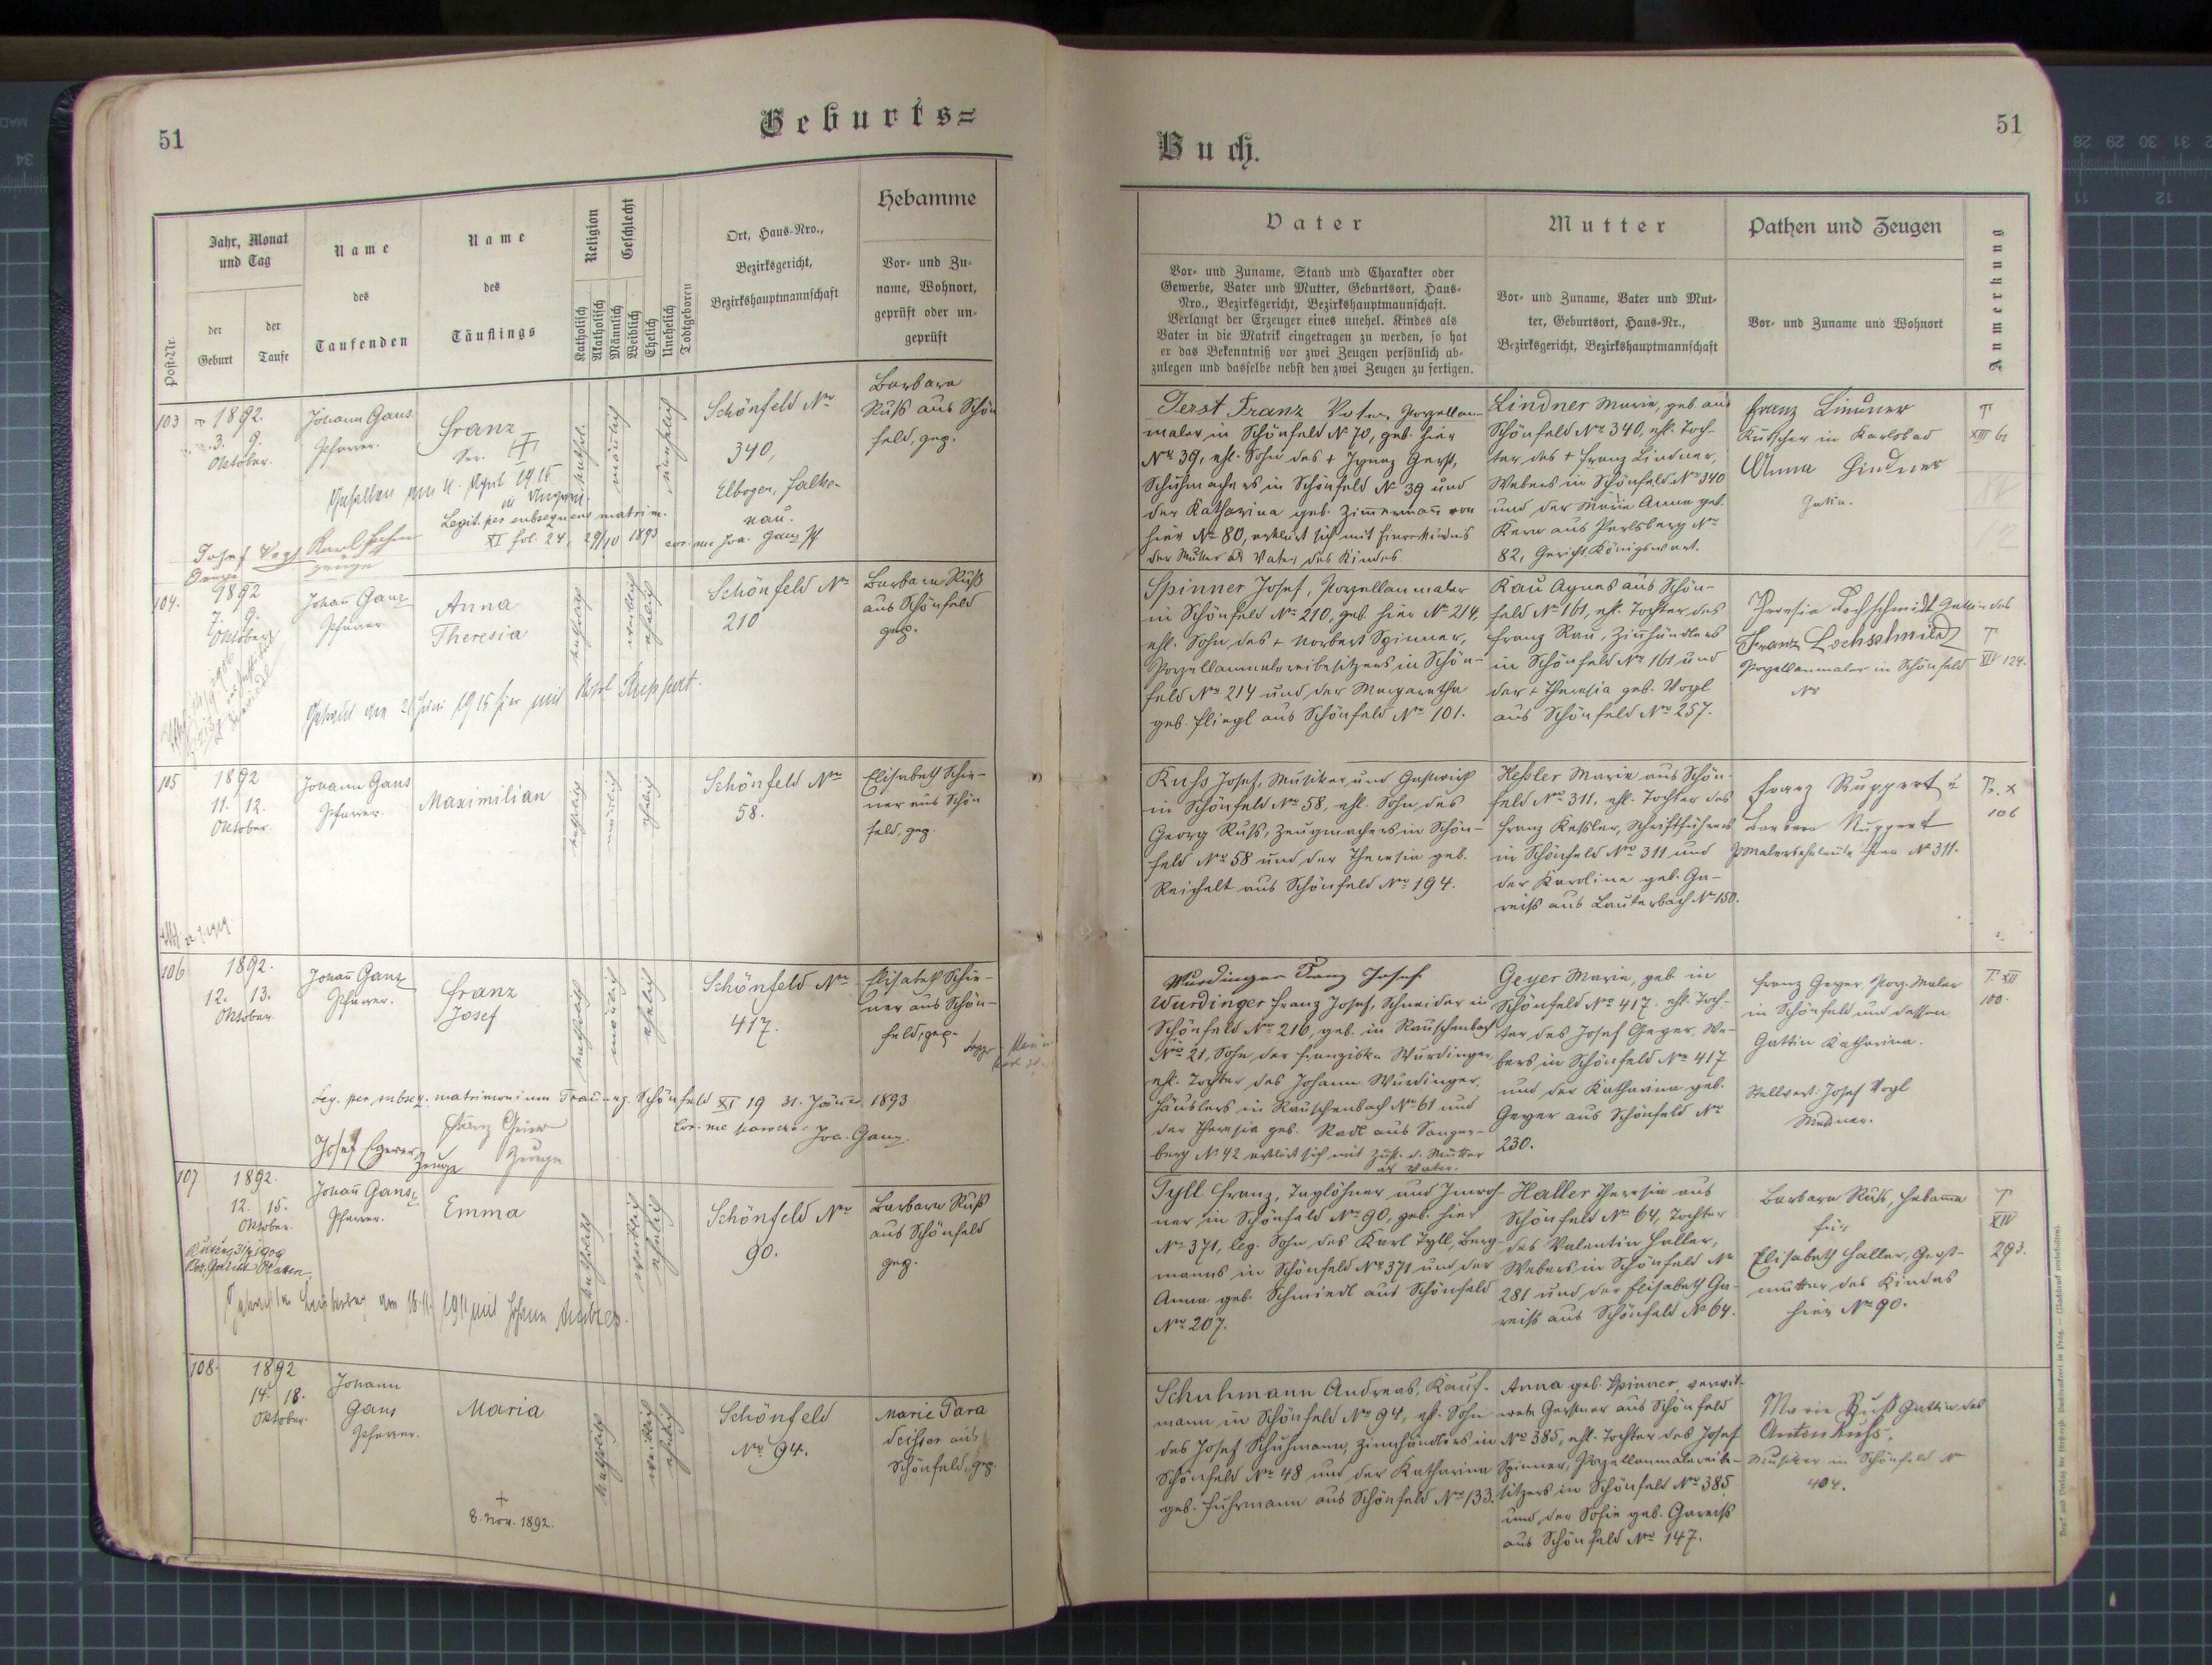 51
Geburts=
Post-Nr.
Jahr, Monat
und Tag
der
Geburt
der
Taufe
Name
des
Taufenden
Name
des
Täuflings
Religion
Katholisch
Akatholisch
Geschlecht
Männlich
Weiblich
Ehelich
Unehelich
Todtgeboren
Ort, Haus-Nro.,
Bezirksgericht,
Bezirkshauptmannschaft
Hebamme
Vor- und Zu-
name, Wohnort,
geprüft oder un-
geprüft
103
1892.
3. 9.
Oktober.
Johann Gans
Pfarrer.
Franz
kathol.
männlich
unehelich
Schönfeld Nro
340,
Elbogen, Falke-
nau.
Barbara
Russ aus Schön
feld, gep.
Gefallen am 4. April 1915
Legit. per subsequens matrim.
XI fol. 24, 29/10 1893
Zeuge
104.
1892
7. 9.
Oktober
Johann Ganz
Pfarrer
Anna
Theresia
katholisch
weiblich
ehelich
Schönfeld Nro
210
Barbara Russ
aus Schönfeld
gep.
Getraut am 21 Juni 1915 hier mit Ruppert.
105
1892
11. 12.
Oktober.
Johann Gans
Pfarrer.
Maximilian
katholisch
männlich
ehelich
Schönfeld Nro
58.
Elisabeth Schie-
ner aus Schön
feld, gep.
106
1892.
12. 13.
Oktober
Johann Ganz
Pfarrer.
Franz
Josef
katholisch
männlich
ehelich
Schönfeld Nro
417.
Elisabeth Schie-
ner aus Schön-
feld, gep.
Leg. per subseq. matrimonium Trauung Schönfeld XI 19 31. Jäner 1893
Josef Egerer
Zeuge
Zeuge
107
1892.
12. 15.
Oktober.
Johann Ganz
Pfarrer.
Emma
katholisch
weiblich
ehelich
Schönfeld Nro
90.
Barbara Russ
aus Schönfeld
gep.
108.
1892
14. 18.
Oktober.
Johann
Gans
Pfarrer.
Maria
katholisch
weiblich
ehelich
Schönfeld
Nro 94.
Marie Para
deiser aus
Schönfeld, gep.
+
8. Nov. 1892.
51
Buch.
Vater
Vor- und Zuname, Stand und Charakter oder
Gewerbe, Vater und Mutter, Geburtsort, Haus-
Nro., Bezirksgericht, Bezirkshauptmannschaft.
Verlangt der Erzeuger eines unehel. Kindes als
Vater in die Matrik eingetragen zu werden, so hat
er das Bekenntniß vor zwei Zeugen persönlich ab-
zulegen und dasselbe nebst den zwei Zeugen zu fertigen.
Mutter
Vor- und Zuname, Vater und Mut-
ter, Geburtsort, Haus-Nr.,
Bezirksgericht, Bezirkshauptmannschaft
Pathen und Zeugen
Vor- und Zuname und Wohnort
Anmerkung
Gerst Franz Vater, Porzellan-
maler in Schönfeld No 70, geb. hier
Nro 39, ehl. Sohn des + Ignaz Gerst,
Schuhmachers in Schönfeld No 39 und
der Katharina geb. Zimmermann von
hier No 80, erklärt sich mit Einverständnis
der Mutter als Vater des Kindes
Lindner Marie, geb. aus
Schönfeld Nro 340, ehl. Toch-
ter des + Franz Lindner,
Webers in Schönfeld Nro 340
und der Marie Anna geb.
Kern aus Perlsberg Nro
82, Gericht Königswart.
Franz Lindner
Kutscher in Karlsbad
Anna Lindner
T
XIII 61
Spinner Josef, Porzellanmaler
in Schönfeld Nro 210, geb. hier No 214,
ehl. Sohn des + Norbert Spinner,
Porzellanmalereibesitzers in Schön-
feld Nro 214 und der Margaretha
geb. Fliegl aus Schönfeld Nro 101.
Rau Agnes aus Schön-
feld No 161, ehl. Tochter des
Franz Rau, Zinnhändlers
in Schönfeld Nro 161 und
der + Theresia geb. Vogl
aus Schönfeld Nro 257.
Theresia Lochschmidt Gattin des
Franz Lochschmidt
Porzellanmaler in Schönfeld
Nro
T
XIV 124.
Russ Josef, Musiker und Gastwirth
in Schönfeld Nro 58, ehl. Sohn des
Georg Russ, Zeugmachers in Schön-
feld Nro 58 und der Theresia geb.
Reichelt aus Schönfeld Nro 194.
Kessler Marie aus Schön-
feld Nro 311, ehl. Tochter des
Franz Kessler, Schriftführers
in Schönfeld Nro 311 und
der Karoline geb. Ga-
reiss aus Lauterbach No 150.
Franz Ruppert u
Barbara Ruppert
Malerseheleute hier No 311.
Tr. X
106
Wurdinger Franz Josef
Wurdinger Franz Josef, Schneider in
Schönfeld Nro 216, geb. in Rauschenbach
Nro 21, Sohn der Franziska Wurdinger,
ehl. Tochter des Johann Wurdinger,
Häuslers in Rauschenbach No 61 und
der Theresia geb. Radl aus Sanger-
berg No 42 erklärt sich mit Zust. d. Mutter
als Vater.
Geyer Marie, geb. in
Schönfeld Nro 417, ehl. Toch-
ter des Josef Geyer, We-
bers in Schönfeld No 417
und der Katharina geb.
Geyer aus Schönfeld Nro
230.
Franz Geyer, Porz. Maler
in Schönfeld und dessen
Gattin Katharina.
Stellvert: Josef Vogl
Messner.
T. XII
100.
Tyll Franz, Taglöhner und Inwoh-
ner in Schönfeld Nro 90, geb. hier
No 371, leg. Sohn des Karl Tyll, Berg-
manns in Schönfeld Nro 371 und der
Anna geb. Schmiedl aus Schönfeld
Nro 207.
Haller Theresia aus
Schönfeld No 64, Tochter
des Valentin Haller,
Webers in Schönfeld No
281 und der Elisabeth Ga-
reiss aus Schönfeld No 64.
Barbara Russ, Hebamme
für
Elisabeth Haller, Gross-
mutter des Kindes
hier No 90.
T
XIV
293.
Schuhmann Andreas, Kauf-
mann in Schönfeld No 94, ehl. Sohn
des Josef Schuhmann, Zinnhändlers in
Schönfeld Nro 48 und der Katharina
geb. Fuhrmann aus Schönfeld Nro 133.
Anna geb. Spinner, verwit-
wete Gerstner aus Schönfeld
No 385, ehl. Tochter des Josef
Spinner, Porzellanmalereibe-
sitzers in Schönfeld Nro 385
und der Sofie geb. Gareiss
aus Schönfeld Nro 147.
Marie Russ Gattin des
Anton Russ,
Musiker in Schönfeld No
404.